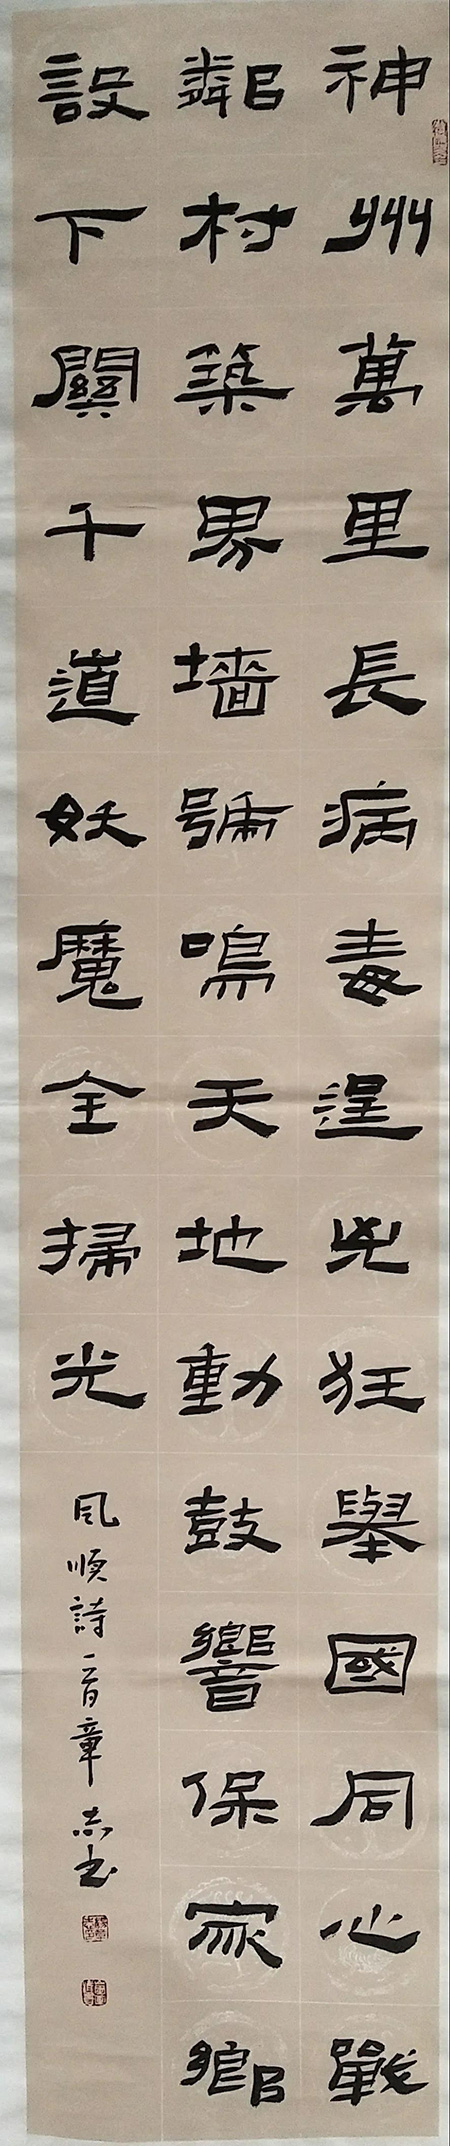 神州萬里長病毒逞兇狂舉國同心戰
鄰村築界墻號鳴天地動鼓響保家鄉
設下關千道妖魔全掃光
風順詩一首章志书